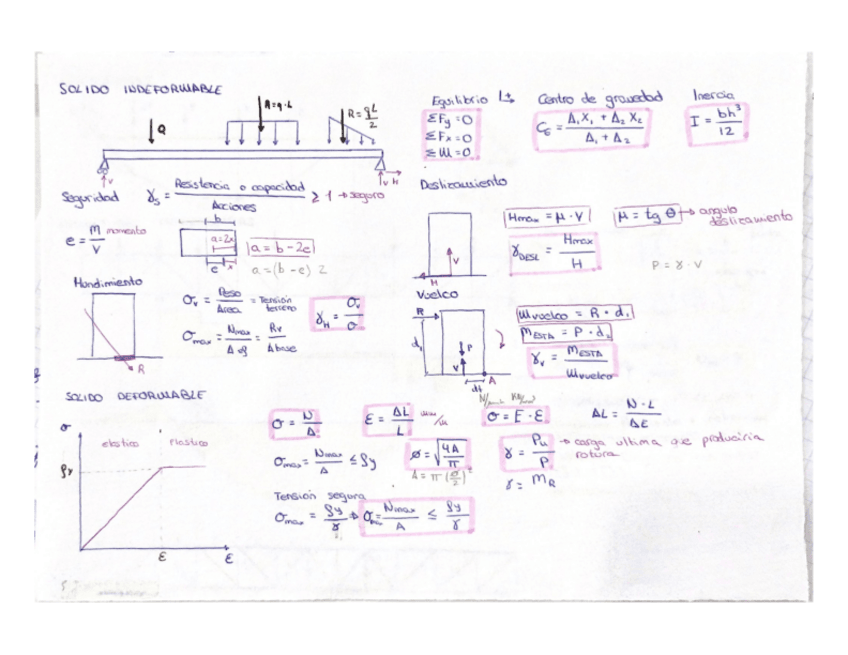 SOLIDO INDEFORMABLE
Q
R = q·L
R = qL/2
V
V H
Equilibrio
ΣFy = 0
ΣFx = 0
ΣM = 0
Centro de gravedad
CG = (A₁X₁ + A₂X₂) / (A₁ + A₂)
Inercia
I = bh³/12
Seguridad γs = Resistencia o capacidad / Acciones ≥ 1 → seguro
e = M/V momento
b
a=2x
e x
a = b - 2e
a = (b - e) 2
Deslizamiento
V
H
Hmax = μ · V
μ = tg θ → angulo deslizamiento
γDESL = Hmax / H
P = γ · V
Hundimiento
R
σv = Peso / Area = Tensión terreno
σmax = Nmax / A ef = Rv / A base
γH = σv / σ
Vuelco
R
d₁
P
V
A
Mvuelco = R · d₁
MESTA = P · d₂
γv = MESTA / Mvuelco
SOLIDO DEFORMABLE
σ
elastico plastico
fy
ε ε
σ = N/A
ε = ΔL/L
σ = E · ε
ΔL = N · L / AE
σmax = Nmax / A ≤ fy
Ø = √(4A/π)
A = π (Ø/2)²
γ = Pu / P → carga ultima que produciria rotura
γ = MR
Tensión segura
σmax = fy / γ → σmax = Nmax / A ≤ fy / γ